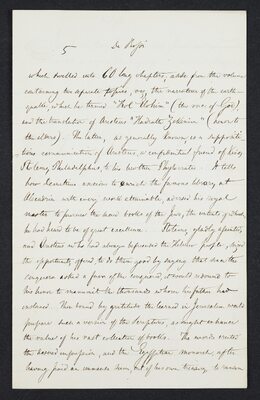 5 De Rossi
which swelled into 60 long chapters, aside from the volume
containing two separate pieces, viz, the narrative of the earth-
quake, which he termed "Kol Elohim" (the voice of God)
and the translation of Aristeas "Hadrath Zekenim" (honor to
the elders). The latter, as generally known, is a supposititi-
ous communication of Aristeas, a confidential friend of King
Ptolemy Philadelphus, to his brother Philocrates. It tells
how Demetrius anxious to enrich the famous library at
Alexandria with every work attainable, advised his royal
master to procure the hand books of the Jews, the contents of which
he had heard to be of great excellence. Ptolemy gladly assented,
and Aristeas who had always befriended the Hebrew people, seized
the opportunity offered, to do them good by saying that since the
conqueror asks a favor of the conquered, it would redound to
his honor to manumit the thousands whom his father had
enslaved. Then bound by gratitude the learned in Jerusalem would
prepare such a version of the Scriptures, as might enhance
the value of his vast collection of books. The words excited
the desired impression, and the Egyptian monarch, after
having paid an immense sum out of his own treasury to ransom